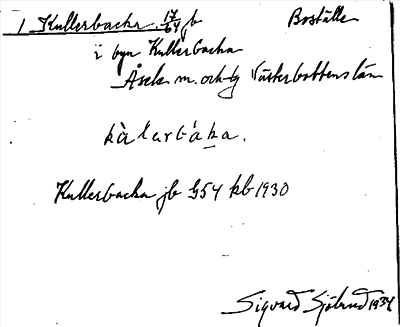 1 Kullerbacka 17/64 jb Boställe
i byn Kullerbacka
Åsele m. och lg Västerbottens län
Kullerbacka jb §54 kb 1930
Sigvard Sjölund 1934